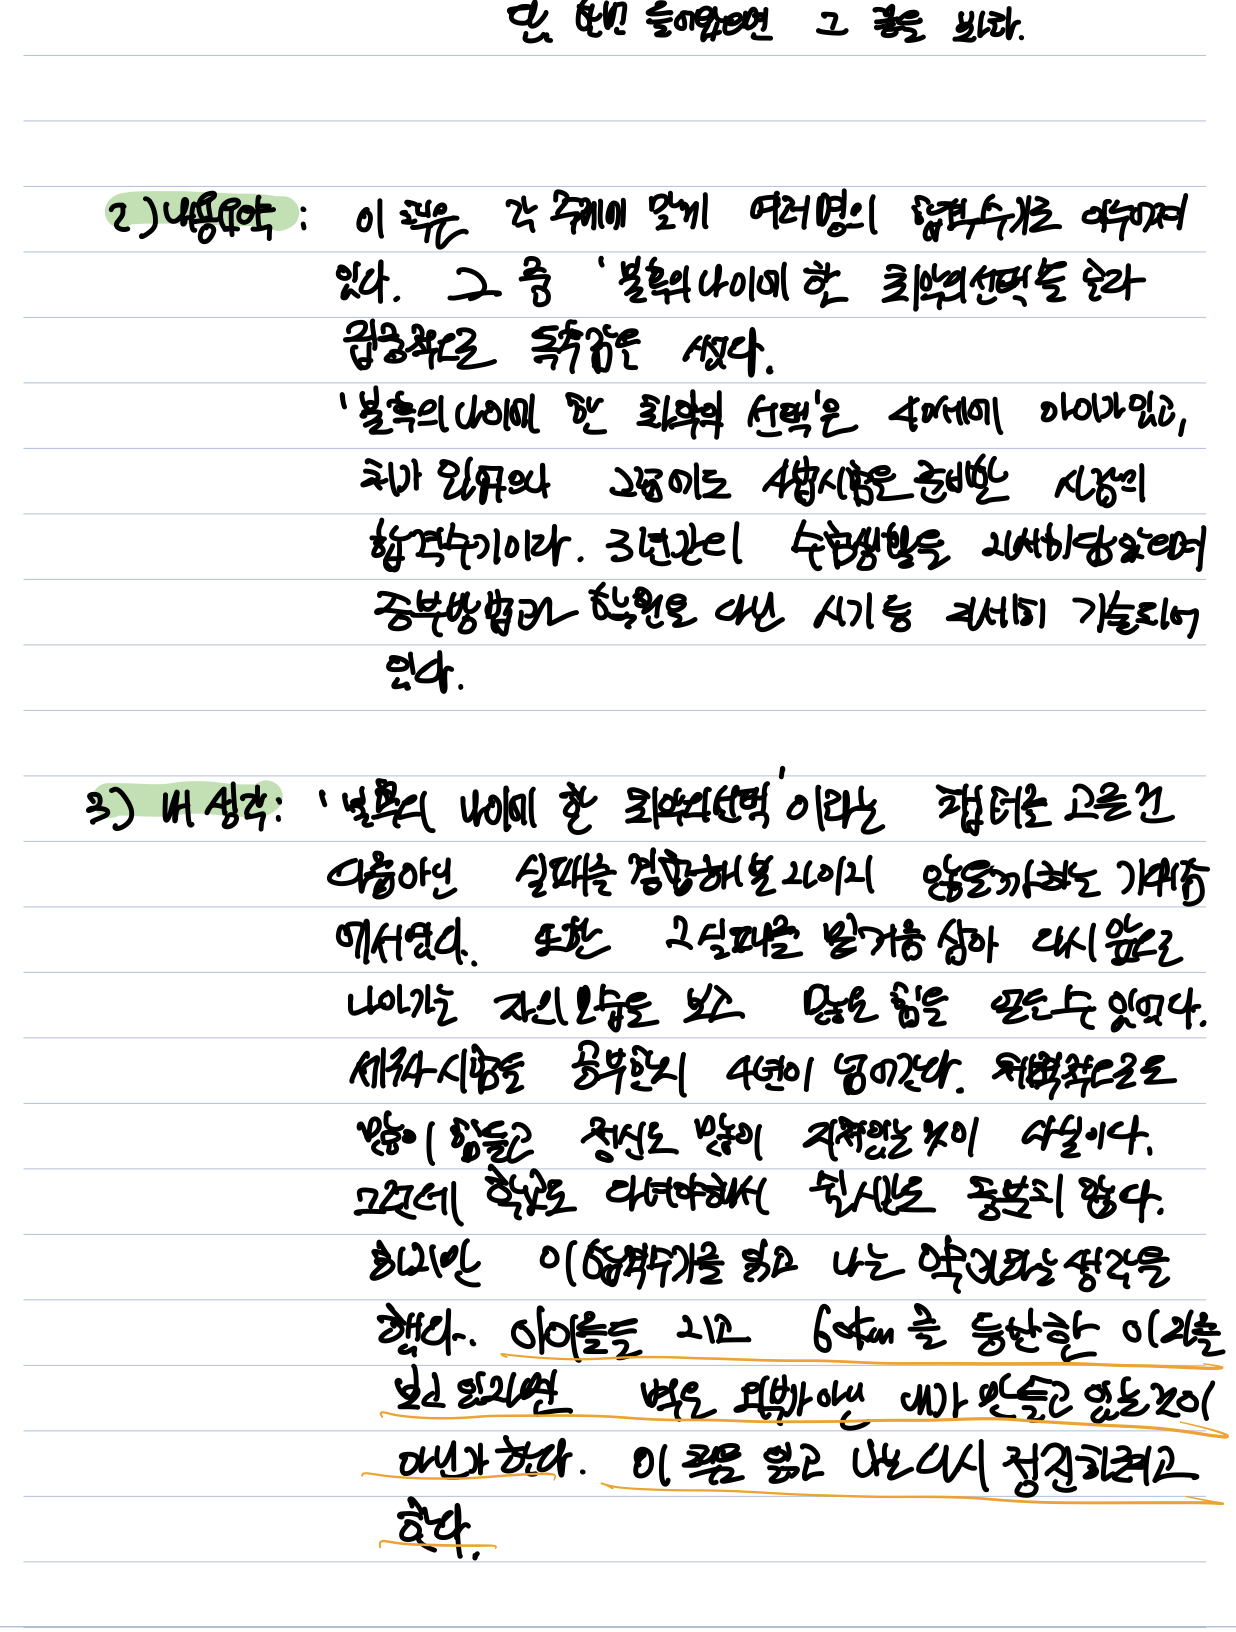 단 한번 들어왔으면 그 꿈을 봐라.
2) 내용요약 : 이 책은 각 주제에 맞게 여러명의 합격수기로 이루어져
있다. 그 중 '불혹의 나이에 한 최악의 선택'을 골라
집중적으로 독후감을 썼다.
'불혹의 나이에 한 최악의 선택'은 4세에 아이가 있고,
처가 있으나 그럼에도 사법시험을 준비한 사람의
합격수기이다. 3년간의 수험생활을 자세히 담았으며
공부방법과 학원을 다닌 시기 등 자세히 기술되어
있다.
3) 내 생각 : '불혹의 나이에 한 최악의 선택'이라는 챕터를 고른건
다름아닌 실패를 경험해본 자이지 않을까하는 기대감
에서였다. 또한 그 실패를 밑거름 삼아 다시 앞으로
나아가는 자의 모습을 보고 많은 힘을 얻을 수 있었다.
세무사 시험을 공부한지 4년이 넘어간다. 체력적으로도
많이 힘들고 정신도 많이 지쳐있는 것이 사실이다.
그런데 학교도 다녀야해서 쉴시간도 충분치 않다.
하지만 이 합격수기를 읽고 나는 약과라는 생각을
했다. 아이를 들 지고 60km를 등산한 이 자를
보고 있자면 벽은 외부가 아닌 내가 만들고 있는 것이
아닌가 한다. 이 책을 읽고 나는 다시 정진하려고
한다.